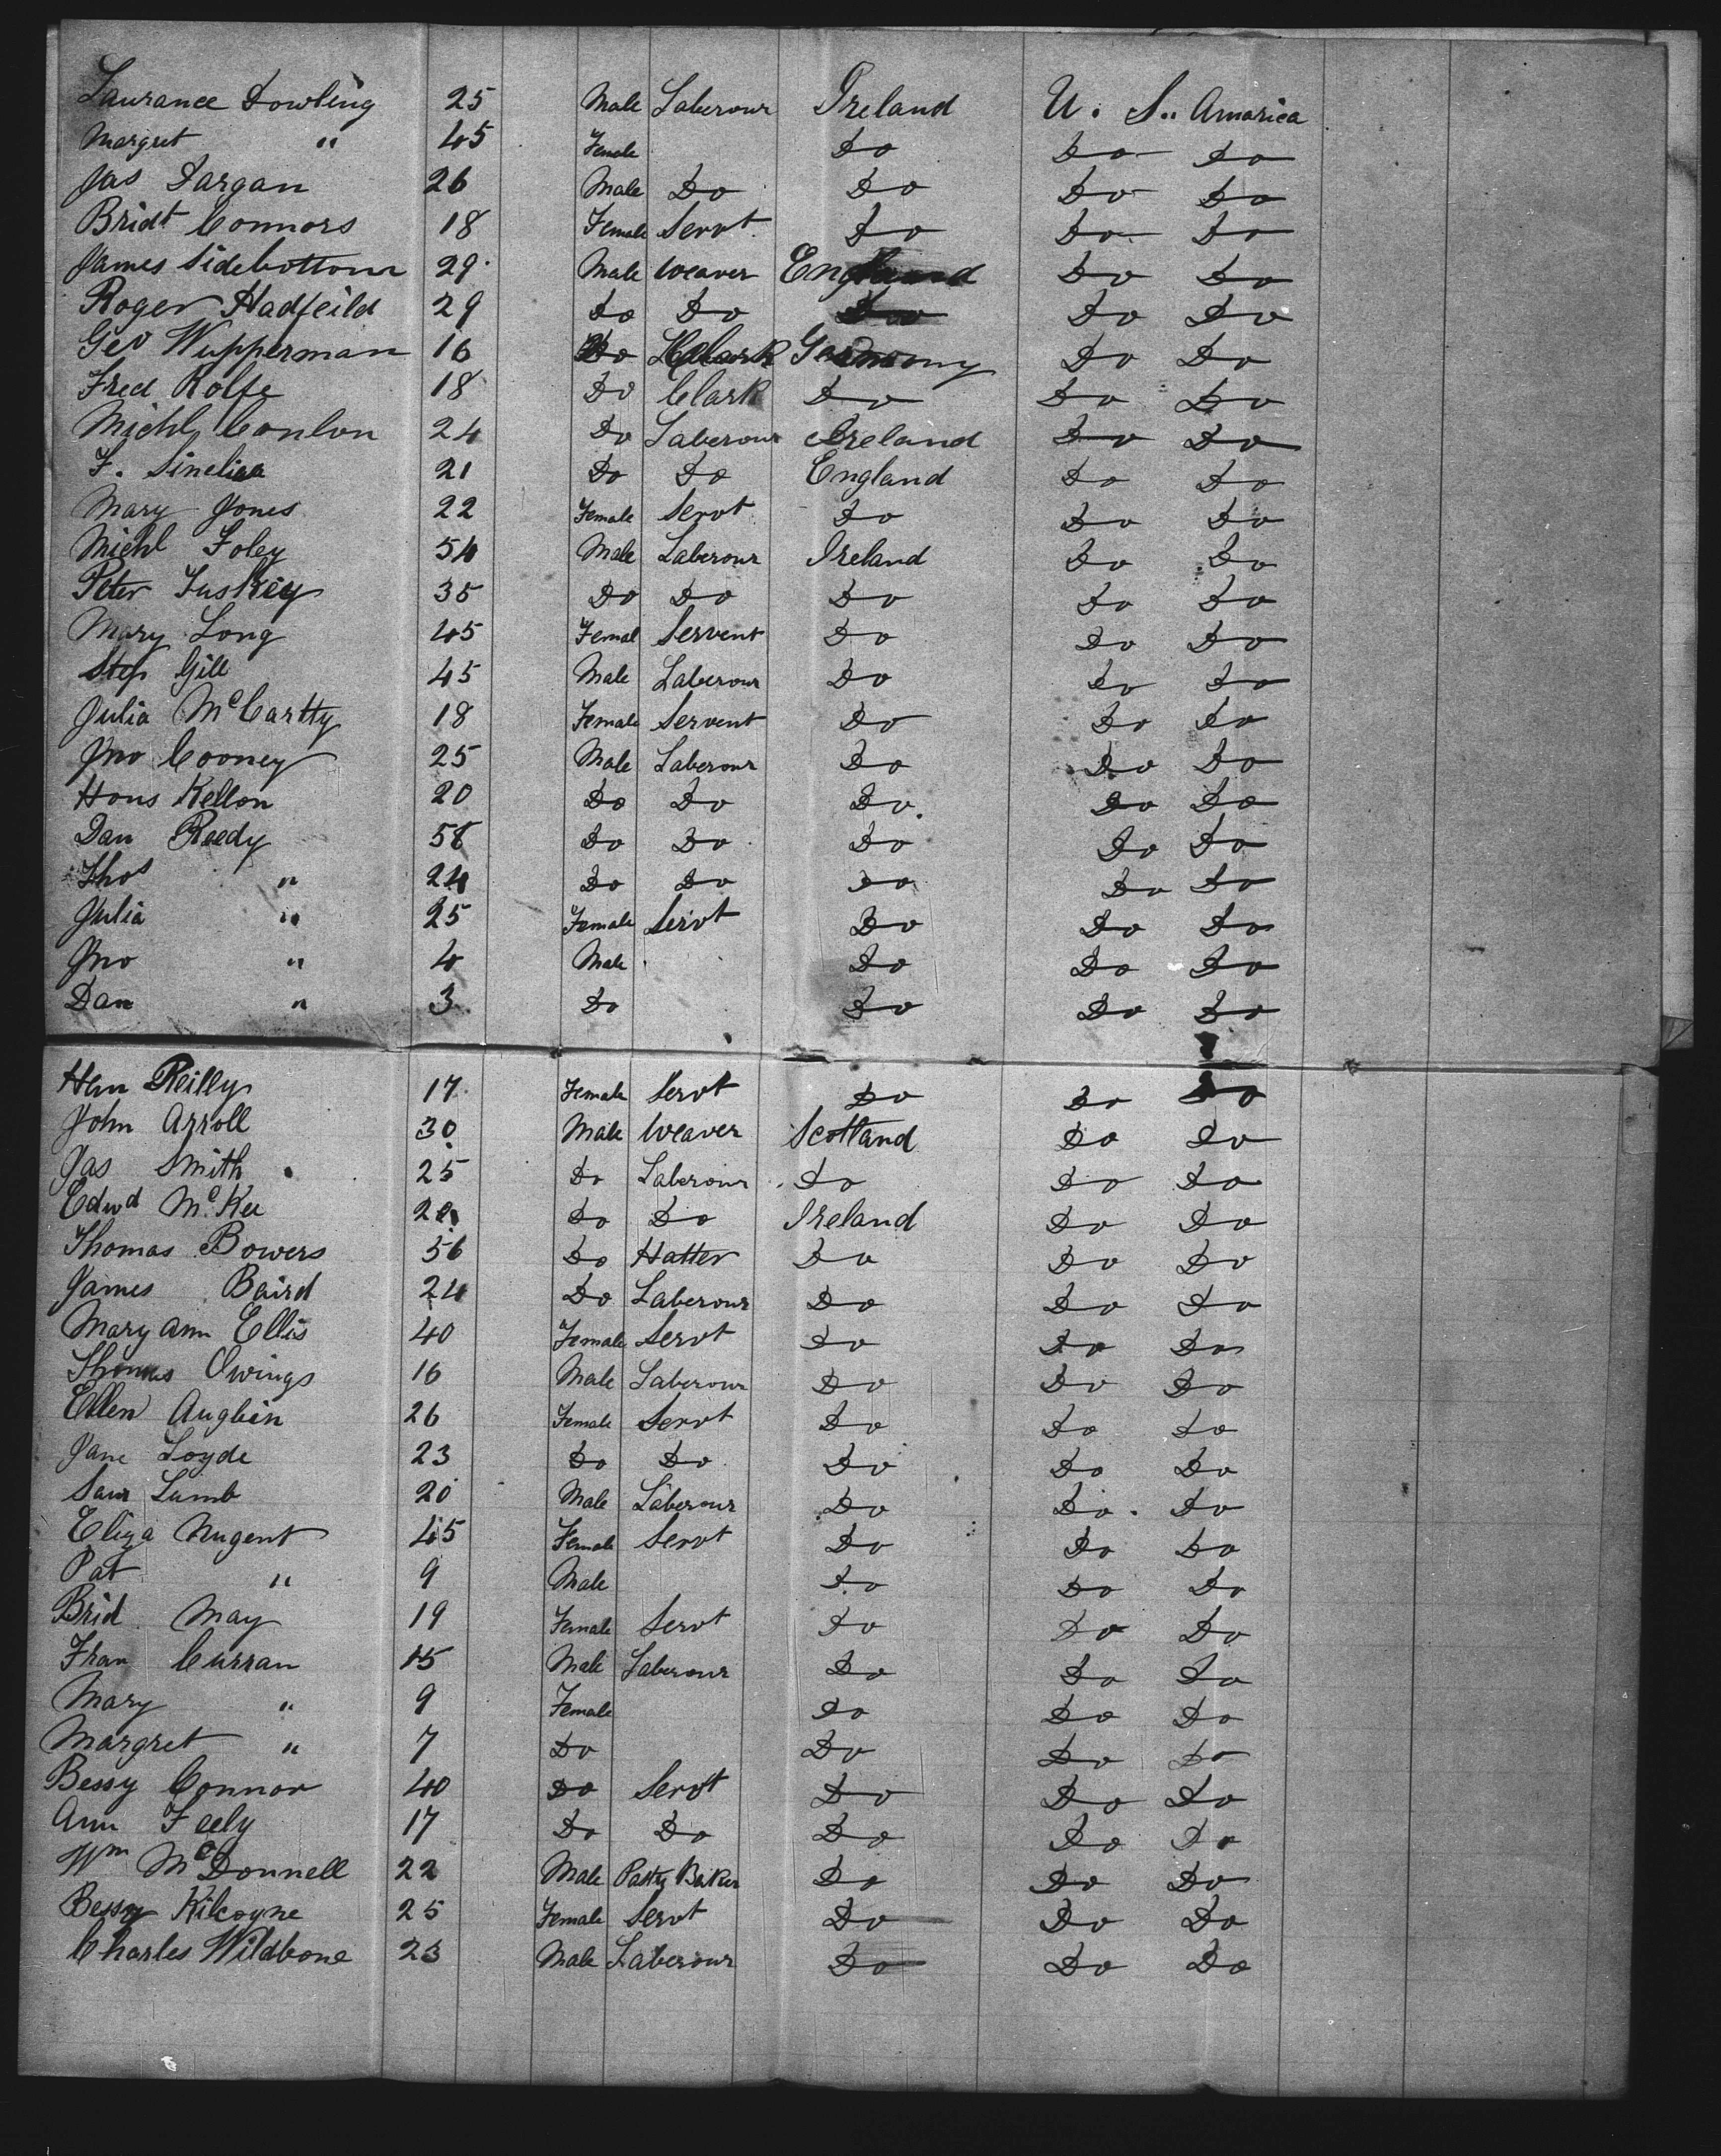 Laurance Dowling 25 Male Laberour Ireland U. S.. Amarica
Margret " 45 Female Do Do Do
Jas Dargan 26 Male Do Do Do Do
Bridt Connors 18 Female Servt Do Do Do
James Sidebottom 29 Male Weaver England Do Do
Roger Hadfeild 29 Do Do Do Do Do
Geo Wupperman 16 Do Clark Germony Do Do
Fred Rolfe 18 Do Clark Do Do Do
Michl Conlon 24 Do Laberour Ireland Do Do
F. 21 Do Do England Do Do
Mary Jones 22 Female Servt Do Do Do
Michl Foley 54 Male Laberour Ireland Do Do
Peter Fuskey 35 Do Do Do Do Do
Mary Long 45 Femal Servent Do Do Do
Step Gill 45 Male Laberour Do Do Do
Julia McCartty 18 Female Servent Do Do Do
Jno Cooney 25 Male Laberour Do Do Do
Hons Kellon 20 Do Do Do Do Do
Dan Reedy 58 Do Do Do Do Do
Thos " 24 Do Do Do Do Do
Julia " 25 Female Servt Do Do Do
Jno " 4 Male Do Do Do
Dan " 3 Do Do Do Do
Reilly 17 Female Servt Do Do Do
John Arroll 30 Male Weaver Scotland Do Do
Jas Smith 25 Do Laberour Do Do Do
Edwd McKee Do Do Ireland Do Do
Thomas Bowers 56 Do Hatter Do Do Do
James Baird 24 Do Laberour Do Do Do
Mary Ann Ellis 40 Female Servt Do Do Do
Thomas Owings 16 Male Laberour Do Do Do
Ellen Auglin 26 Female Servt Do Do Do
Jane Loyde 23 Do Do Do Do Do
Sam Lumb 20 Male Laberour Do Do Do
Eliza Nugent 45 Female Servt Do Do Do
Pat " 9 Male Do Do Do
Brid May 19 Female Servt Do Do Do
Fran Curran 15 Male Laberour Do Do Do
Mary " 9 Female Do Do Do
Margret " 7 Do Do Do Do
Bessy Connor 40 Do Servt Do Do Do
Ann Feely 17 Do Do Do Do Do
Wm McDonnell 22 Male Patty Baker Do Do Do
Bessy Kilcoyne 25 Female Servt Do Do Do
Charles Wildbone 23 Male Laberour Do Do Do